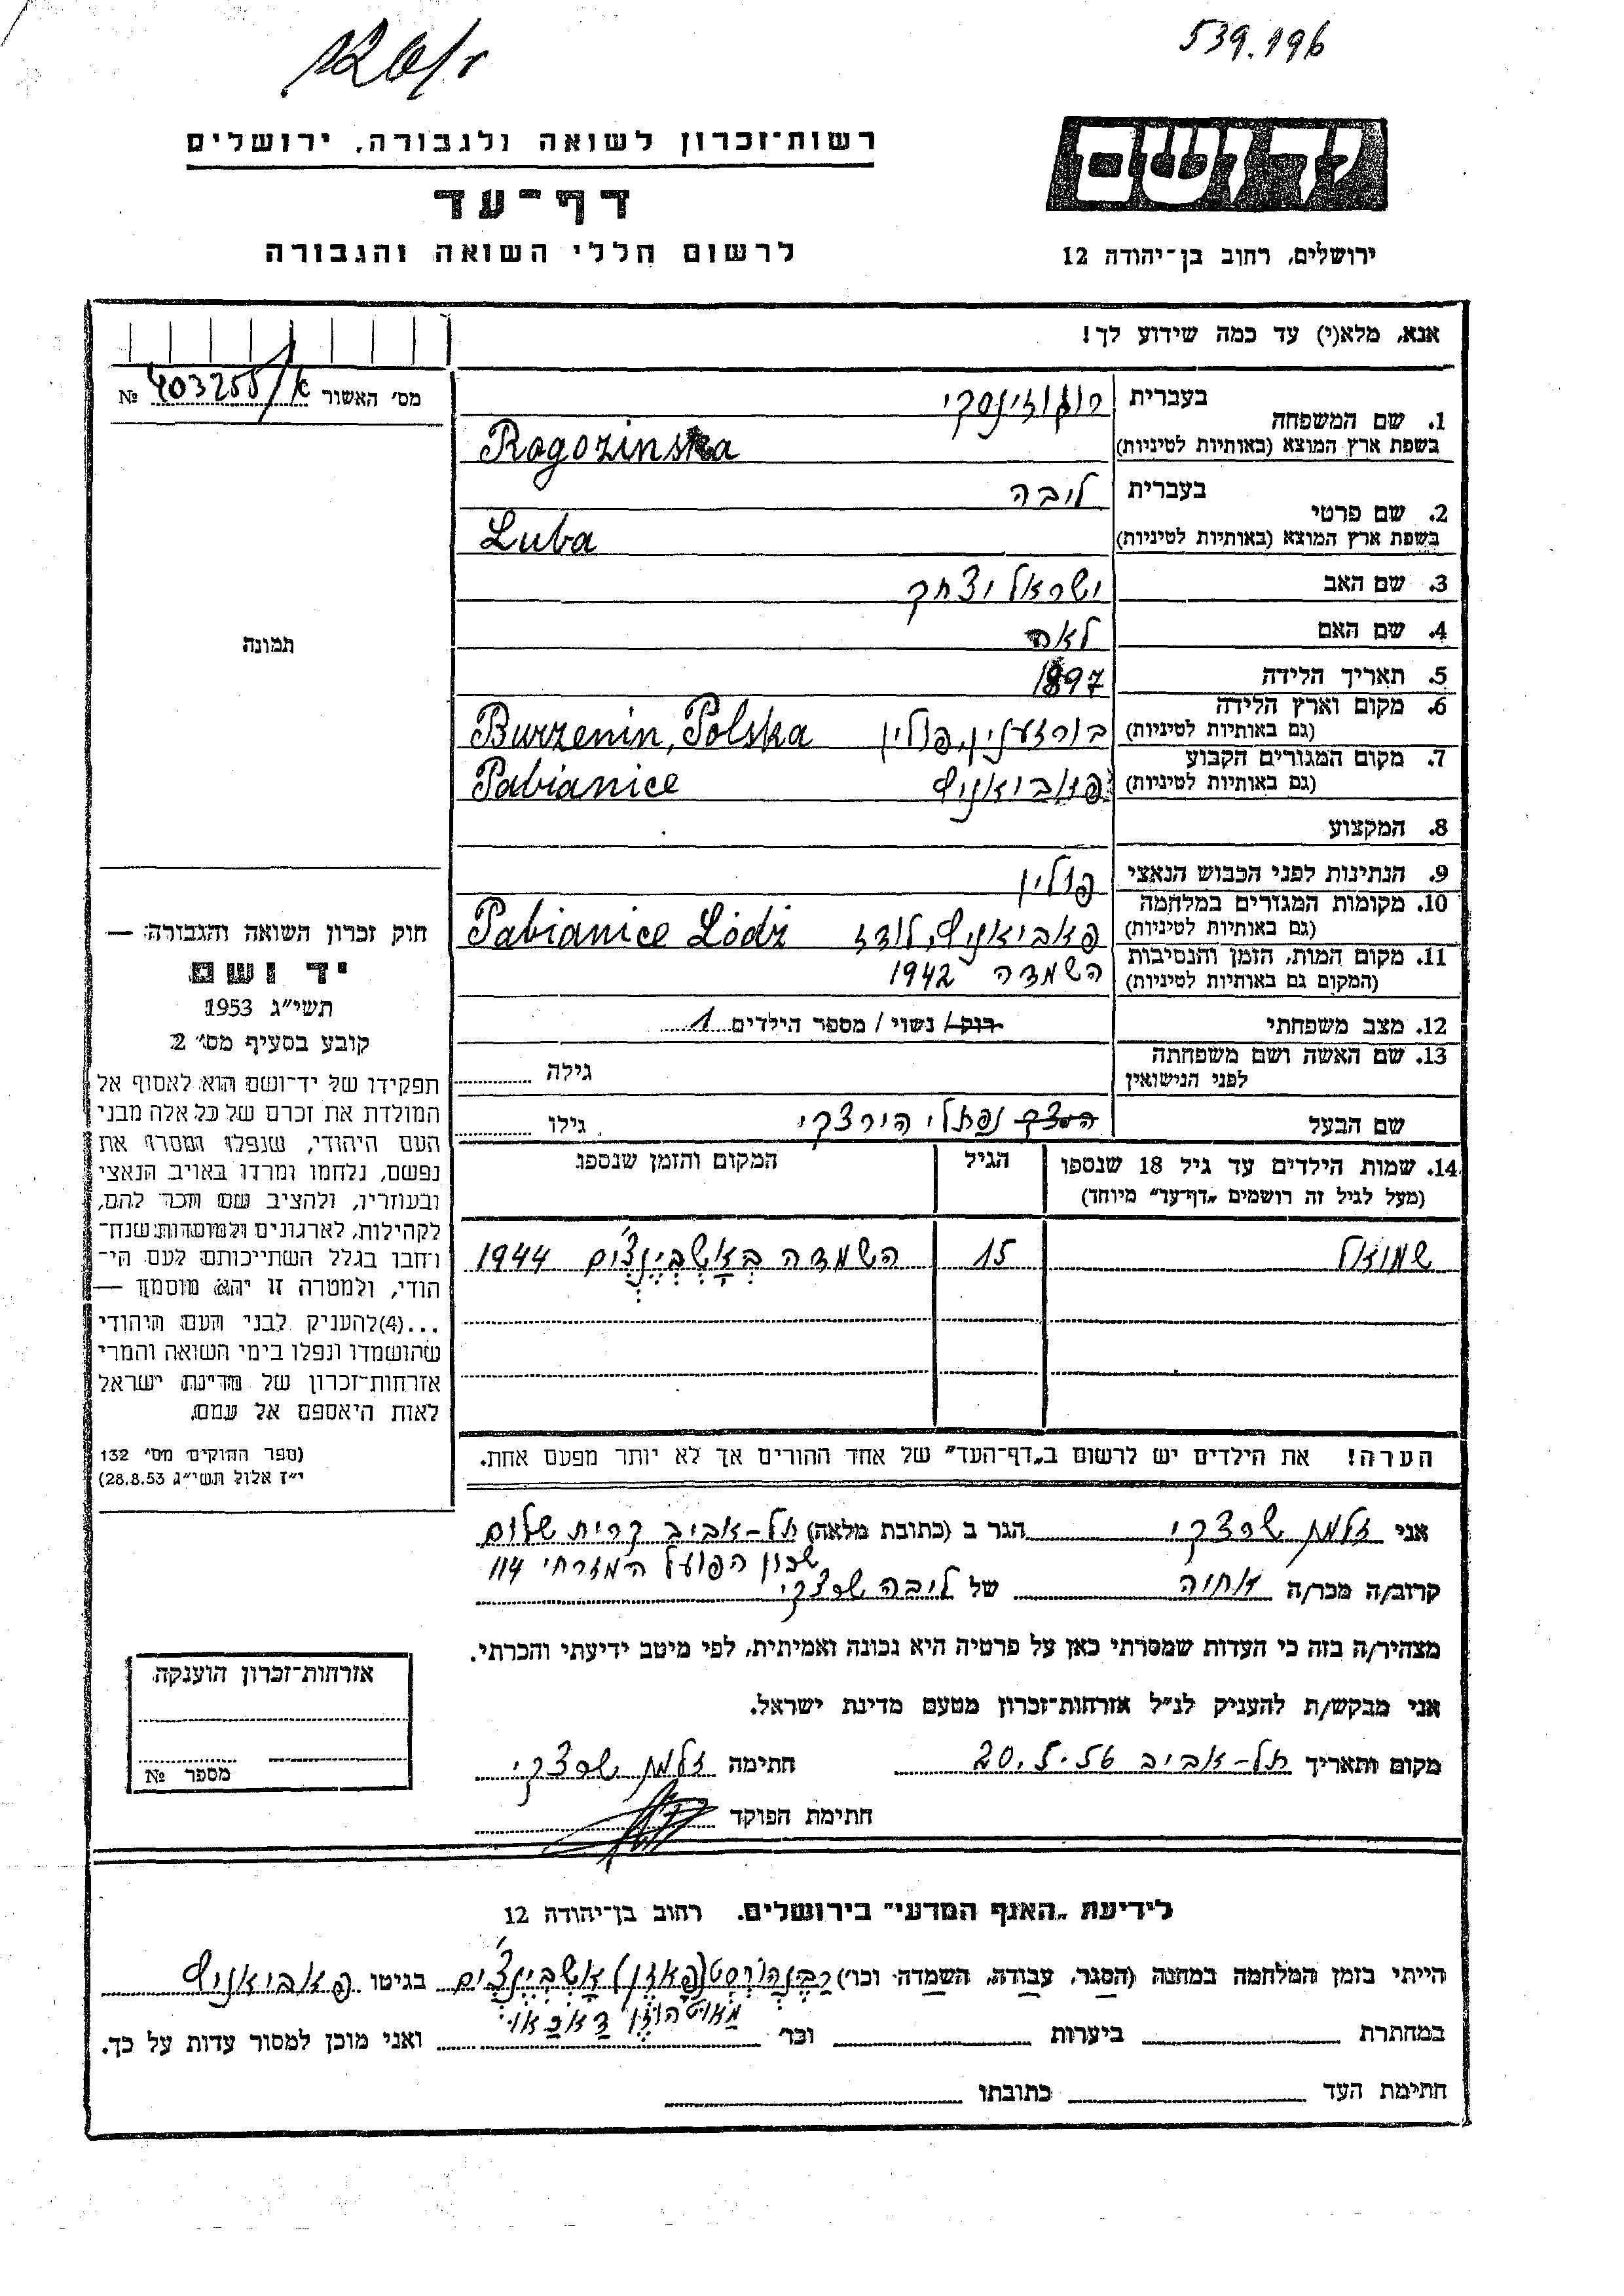 539.196
רשות־זכרון לשואה ולגבורה, ירושלים
דף־עד
לרשום חללי השואה והגבורה
ירושלים, רחוב בן־יהודה 12
אנא, מלא(י) עד כמה שידוע לך!
מס׳ האשור 403255/א №
תמונה
1. שם המשפחה
בעברית רוגוזינסקי
בשפת ארץ המוצא (באותיות לטיניות) Rogozinska
2. שם פרטי
בעברית ליבה
בשפת ארץ המוצא (באותיות לטיניות) Luba
3. שם האב ישראל יצחק
4. שם האם לאה
5. תאריך הלידה 1897
6. מקום וארץ הלידה
(גם באותיות לטיניות) בורזענין, פולין Burzenin, Polska
7. מקום המגורים הקבוע
(גם באותיות לטיניות) פאביאניץ Pabianice
8. המקצוע
9. הנתינות לפני הכבוש הנאצי פולין
10. מקומות המגורים במלחמה
(גם באותיות לטיניות) פאביאניץ, לודז Pabianice Łódź
11. מקום המות, הזמן והנסיבות
(המקום גם באותיות לטיניות) השמדה 1942
12. מצב משפחתי רוק / נשוי / מספר הילדים 1
13. שם האשה ושם משפחתה
לפני הנישואין
גילה
שם הבעל נפתלי הירצקי גילו
14. שמות הילדים עד גיל 18 שנספו
(מעל לגיל זה רושמים „דף־עד״ מיוחד)
הגיל
המקום והזמן שנספו
שמואל 15 השמדה באשבינצים 1944
הערה! את הילדים יש לרשום ב„דף־העד״ של אחד ההורים אך לא יותר מפעם אחת.
חוק זכרון השואה והגבורה —
יד ושם
תשי״ג 1953
קובע בסעיף מס׳ 2
תפקידו של יד־ושם הוא לאסוף אל
המולדת את זכרם של כל אלה מבני
העם היהודי, שנפלו ומסרו את
נפשם, נלחמו ומרדו באויב הנאצי
ובעוזריו, ולהציב שם וזכר להם,
לקהילות, לארגונים ולמוסדות שנח־
רחבו בגלל השתייכותם לעם הי־
הודי, ולמטרה זו יהא מוסמך —
...(4)להעניק לבני העם היהודי
שהושמדו ונפלו בימי השואה והמרי
אזרחות־זכרון של מדינת ישראל
לאות היאספם אל עמם.
(ספר החוקים מס׳ 132
י״ז אלול תשי״ג 28.8.53)
אני זלמן שרצקי הגר ב (כתובת מלאה) תל-אביב קרית שלום
שכון הפועל המזרחי 114
קרוב/ה מכר/ה אחיה של ליבה שרצקי
מצהיר/ה בזה כי העדות שמסרתי כאן על פרטיה היא נכונה ואמיתית, לפי מיטב ידיעתי והכרתי.
אני מבקש/ת להעניק לנ״ל אזרחות־זכרון מטעם מדינת ישראל.
מקום ותאריך תל-אביב 20.5.56 חתימה זלמן שרצקי
חתימת הפוקד
אזרחות־זכרון הוענקה
מספר №
לידיעת „האגף המדעי״ בירושלים, רחוב בן־יהודה 12
הייתי בזמן המלחמה במחנה (הסגר, עבודה, השמדה וכו׳) רבנהורסט (פאזן) אשבינצים בגיטו פאביאניץ
מאוטהוזן דאכאו
במחתרת ביערות וכו׳ ואני מוכן למסור עדות על כך.
חתימת העד כתובתו